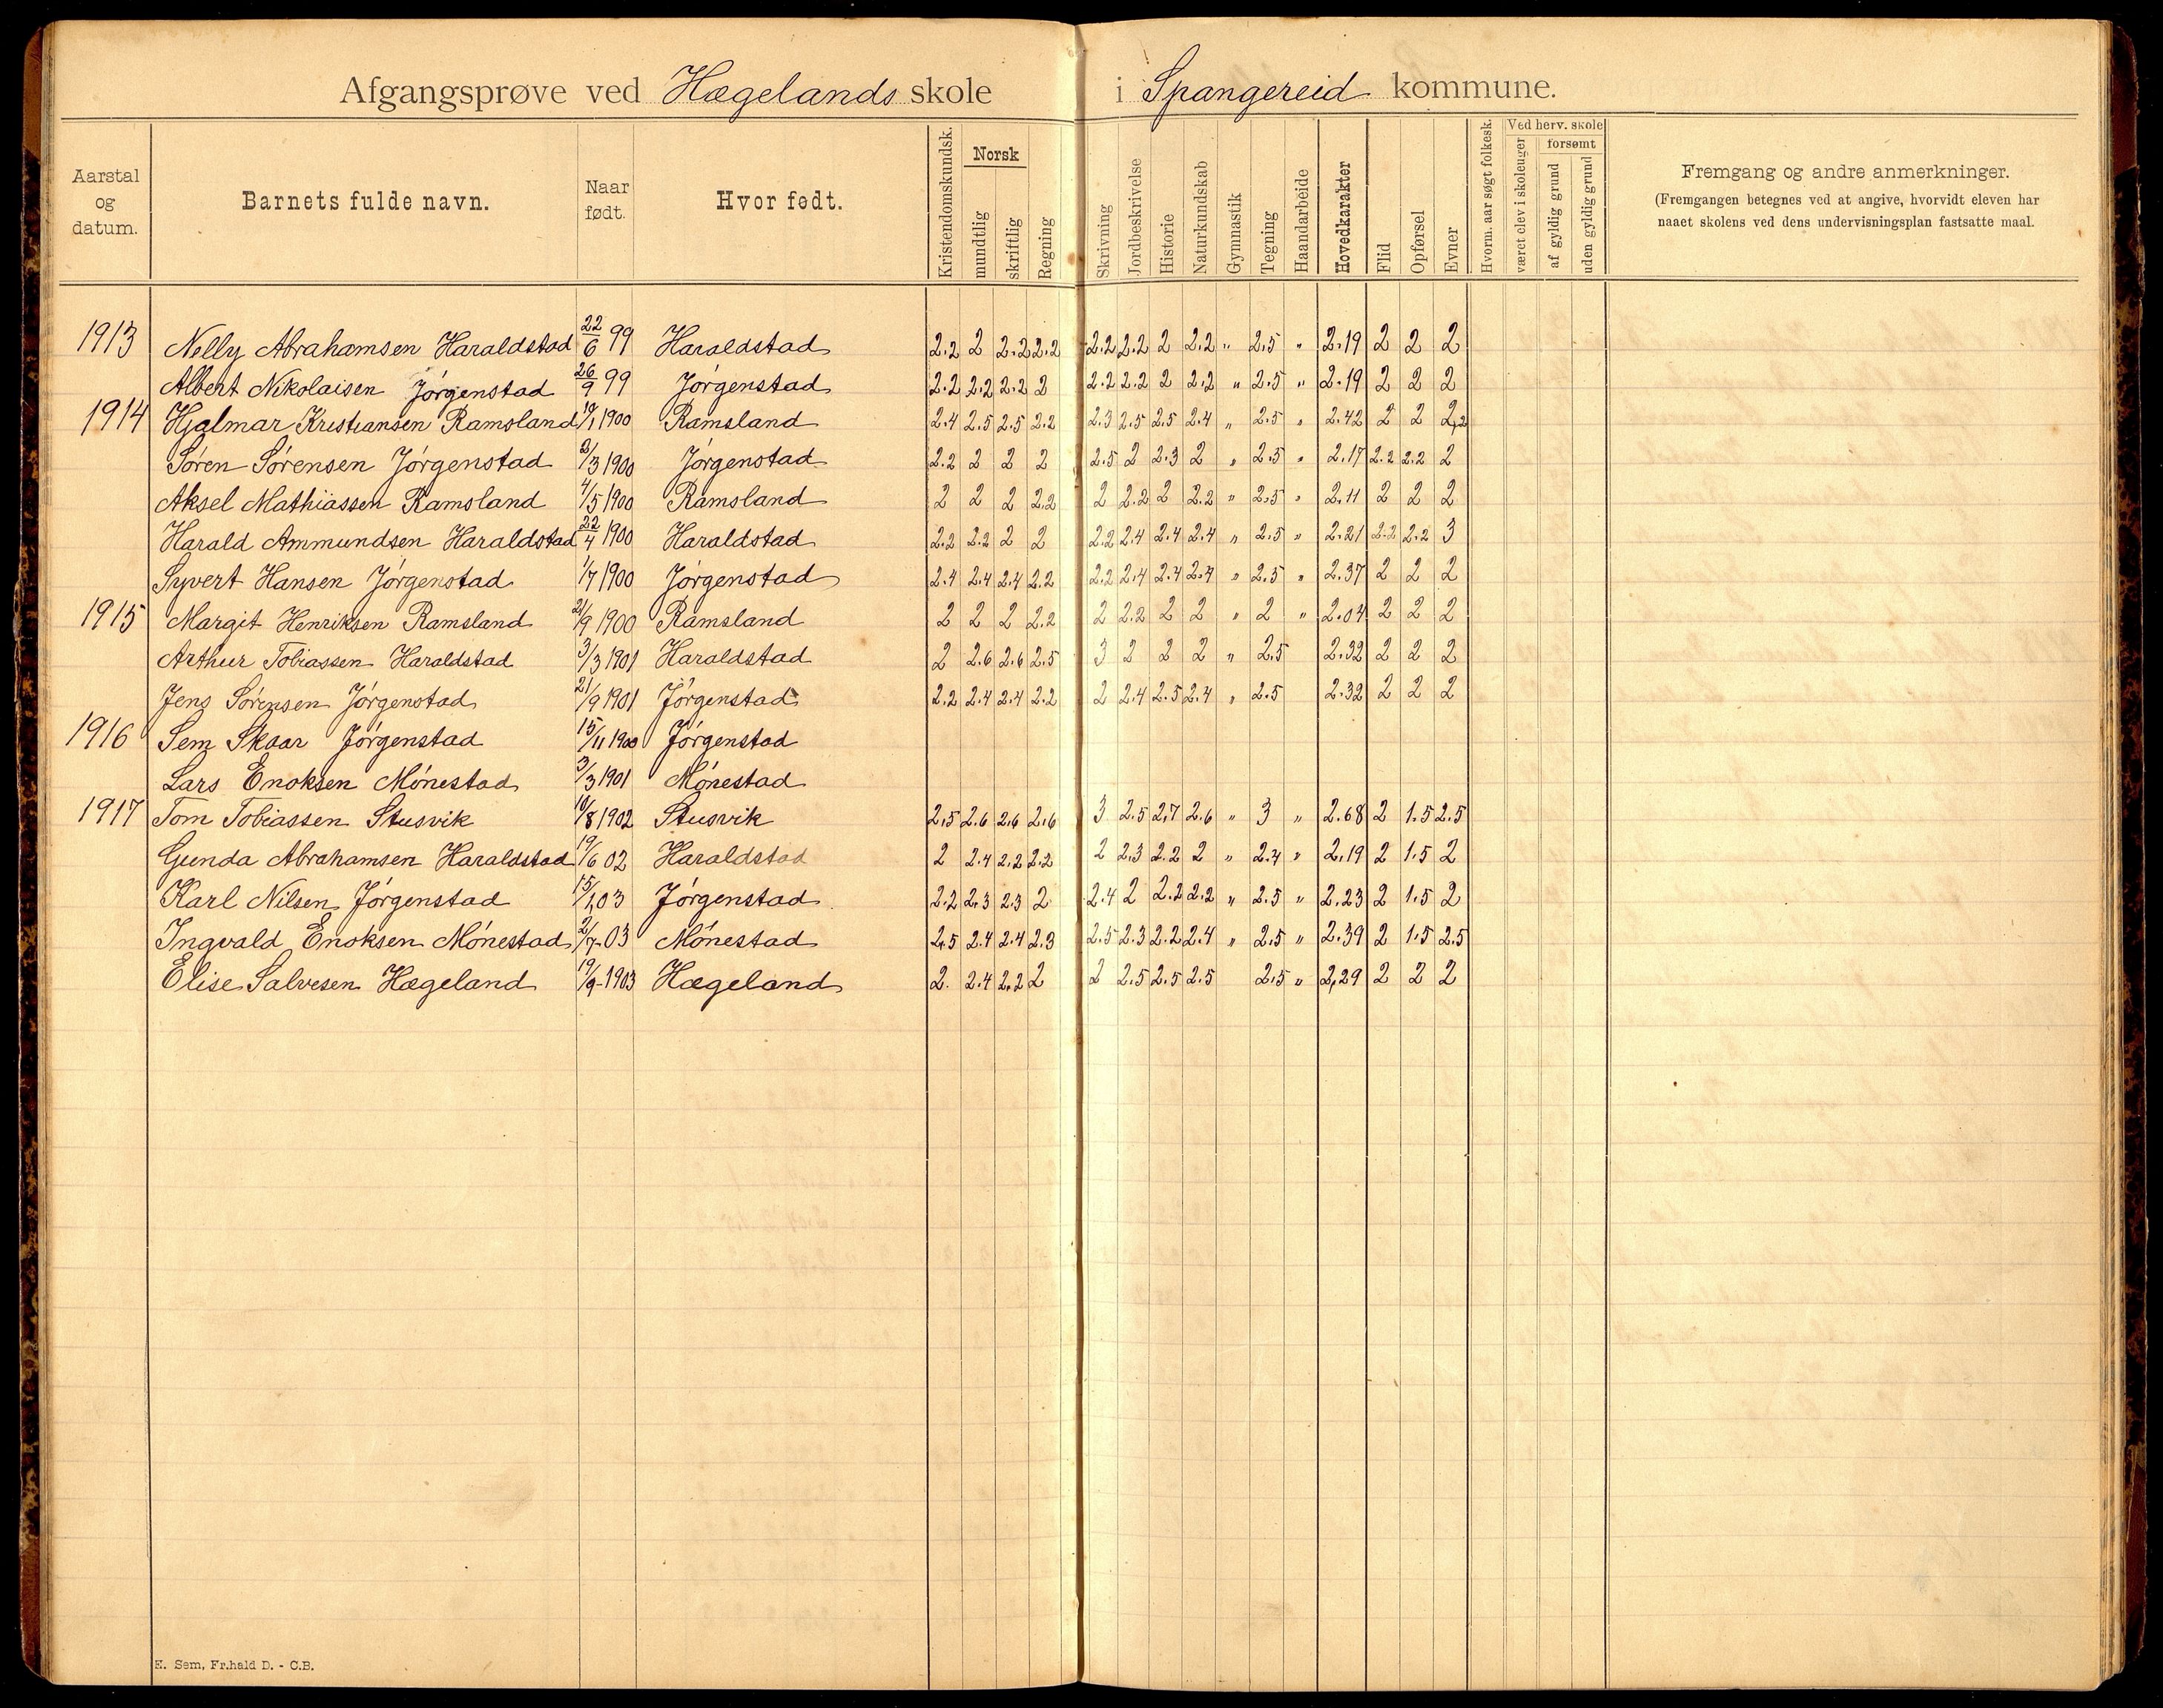 Afgangsprøve ved Hægelands skole i Spangereid kommune.
Aarstal og datum. Barnets fulde navn. Naar født. Hvor født. Kristendomskundsk. Norsk mundtlig skriftlig Regning Skrivning Jordbeskrivelse Historie Naturkundskab Gymnastik Tegning Haandarbeide Hovedkarakter Flid Opførsel Evner Hvorm. aar søgt folkesk. Ved herv. skole været elev i skoleuger forsømt af gyldig grund uden gyldig grund Fremgang og andre anmerkninger.
(Fremgangen betegnes ved at angive, hvorvidt eleven har
naaet skolens ved dens undervisningsplan fastsatte maal.
1913 Nelly Abrahamsen Haraldstad 22/6 99 Haraldstad 2.2 2 2.2 2.2 2.2 2.2 2 2.2 " 2.5 " 2.19 2 2 2
Albert Nikolaisen Jørgenstad 26/9 99 Jørgenstad 2.2 2.2 2.2 2 2.2 2.2 2 2.2 " 2.5 " 2.19 2 2 2
1914 Hjalmar Kristiansen Ramsland 10/1 1900 Ramsland 2.4 2.5 2.5 2.2 2.3 2.5 2.5 2.4 " 2.5 " 2.42 2 2 2,2
Søren Sørensen Jørgenstad 2/3 1900 Jørgenstad 2.2 2 2 2 2.5 2 2.3 2 " 2.5 " 2.17 2.2 2.2 2
Aksel Mathiassen Ramsland 4/5 1900 Ramsland 2 2 2 2.2 2 2.2 2 2.2 " 2.5 " 2.11 2 2 2
Harald Ammundsen Haraldstad 22/4 1900 Haraldstad 2.2 2.2 2 2 2.2 2.4 2.4 2.4 " 2.5 " 2.21 2.2 2.2 3
Syvert Hansen Jørgenstad 1/7 1900 Jørgenstad 2.4 2.4 2.4 2.2 2.2 2.4 2.4 2.4 " 2.5 " 2.37 2 2 2
1915 Margit Henriksen Ramsland 21/9 1900 Ramsland 2 2 2 2.2 2 2.2 2 2 " 2 " 2.04 2 2 2
Arthur Tobiassen Haraldstad 3/3 1901 Haraldstad 2 2.6 2.6 2.5 3 2 2 2 " 2.5 2.32 2 2 2
Jens Sørensen Jørgenstad 21/9 1901 Jørgenstad 2.2 2.4 2.4 2.2 2 2.4 2.5 2.4 " 2.5 2.32 2 2 2
1916 Sem Skaar Jørgenstad 15/11 1900 Jørgenstad
Lars Enoksen Mønestad 3/3 1901 Mønestad
1917 Tom Tobiassen Stusvik 10/8 1902 Stusvik 2.5 2.6 2.6 2.6 3 2.5 2.7 2.6 " 3 " 2.68 2 1.5 2.5
Gunda Abrahamsen Haraldstad 19/6 02 Haraldstad 2 2.4 2.2 2.2 2 2.3 2.2 2 " 2.4 " 2.19 2 1.5 2
Karl Nilsen Jørgenstad 15/1 03 Jørgenstad 2.2 2.3 2.3 2 2.4 2 2.2 2.2 " 2.5 " 2.23 2 1.5 2
Ingvald Enoksen Mønestad 2/7-03 Mønestad 2.5 2.4 2.4 2.3 2.5 2.3 2.2 2.4 " 2.5 " 2.39 2 1.5 2.5
Elise Salvesen Hægeland 19/9-1903 Hægeland 2. 2.4 2.2 2 2 2.5 2.5 2.5 2.5 " 2,29 2 2 2
E. Sem, Fr.hald D. - C.B.